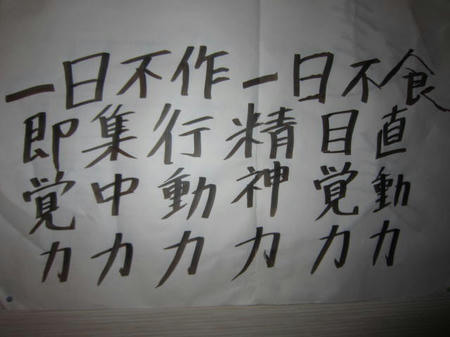 一日不作一日不食
即覚力
集中力
行動力
精神力
目覚力
直動力